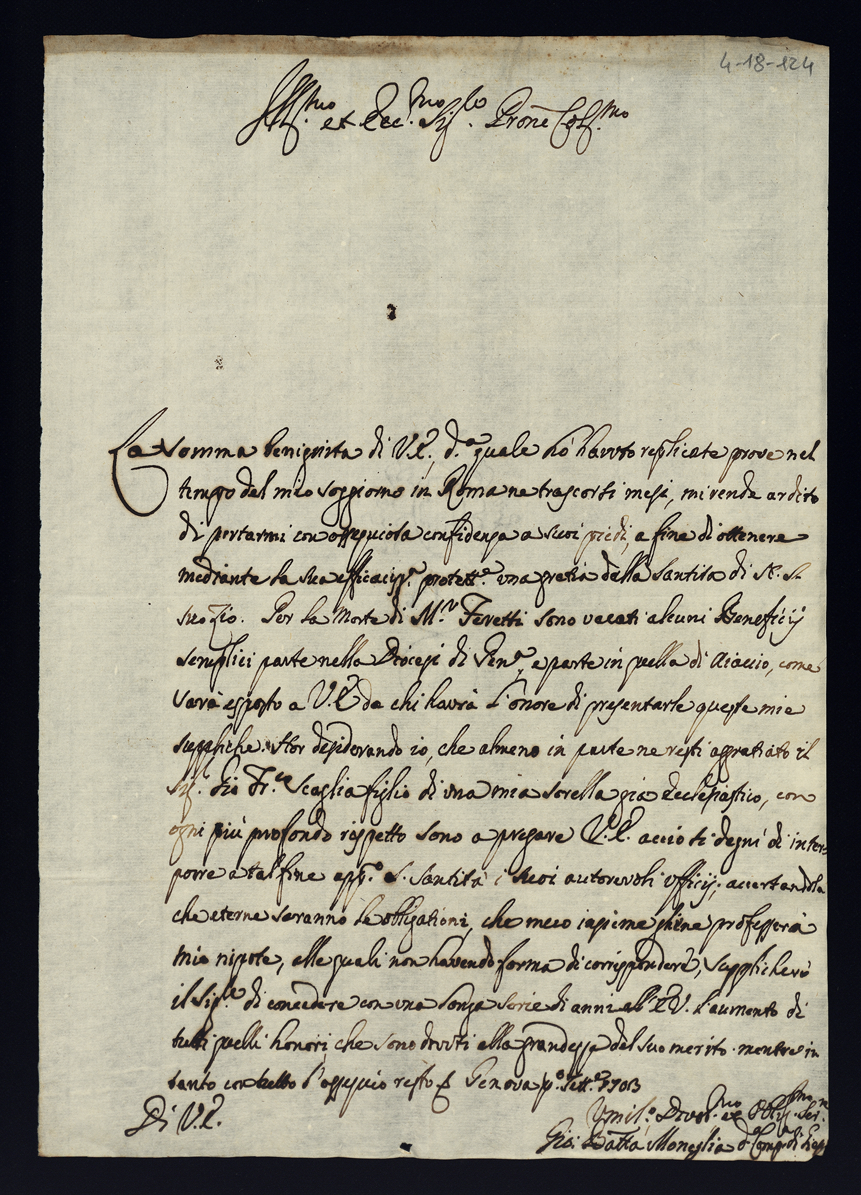 4-18-124
Ill.mo et Ecc.mo Sig.re Prone Col.mo
La somma benignita di V.E., d.a quale hò havuto replicate prove nel
tempo del mio soggiorno in Roma ne trascorsi mesi, mi rende ardito
di portarmi con ossequiosa confidenza a suoi piedi, a fine di ottenere
mediante la sua efficaciss.a protett.e una gratia della Santita di N. S.
suo Zio. Per la Morte di M.r Feretti sono vacati alcuni Beneficij
semplici parte nella Diocesi di Gen.a, e parte in quella di Aiaccio, come
sarà esposto a V.E. da chi havrà l'onore di presentarle queste mie
suppliche. Hor desiderando io, che almeno in parte ne resti aggratiato il
Sig.r Gio Fr.co Scaglia figlio di una mia sorella già Ecclesiastico, con
ogni più profondo rispetto sono a pregare V.E. acciò si degni di inter-
porre a tal fine app.o S. Santità i suoi autorevoli ufficij; accertandola
che eterne saranno le obligationi, che meco insieme gliene professerà
mio nipote, alle quali non havendo forma di corrispondere, supplicherò
il Sig.re di concedere con una longa serie di anni all'E.V. l'aumento di
tutti quelli honori, che sono dovuti alla grandezza del suo merito. mentre in
tanto con tutto l'ossequio resto Genova p.o Sett.e 1703
Di V.E.
Umil.o Devot.mo et Obblig.mo Ser.
Gio: Batta Moneglia